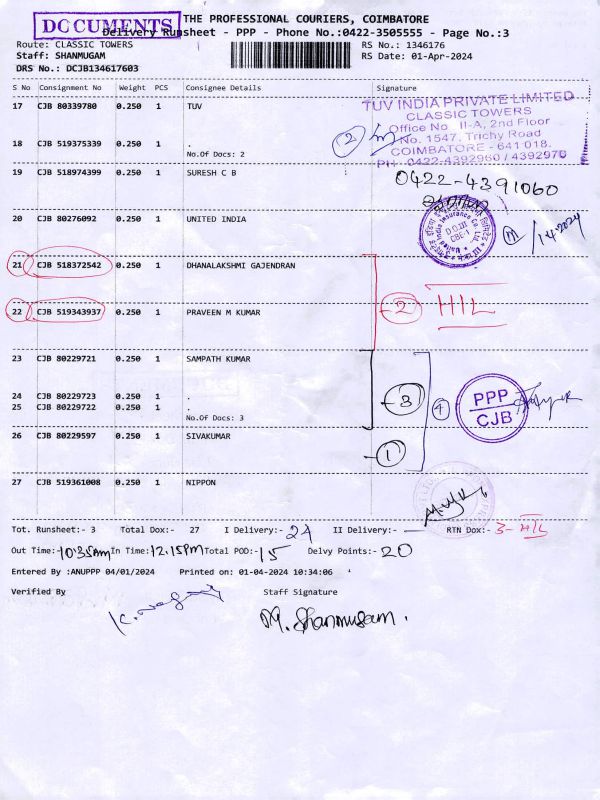 DOCUMENTS THE PROFESSIONAL COURIERS, COIMBATORE
Delivery Runsheet - PPP - Phone No.:0422-3505555 - Page No.:3
Route: CLASSIC TOWERS RS No.: 1346176
Staff: SHANMUGAM RS Date: 01-Apr-2024
DRS No.: DCJB134617603
S No Consignment No Weight PCS Consignee Details Signature
17 CJB 80339780 0.250 1 TUV
TUV INDIA PRIVATE LIMITED
CLASSIC TOWERS
Office No : II-A, 2nd Floor
No. 1547, Trichy Road
COIMBATORE - 641 018.
PH : 0422-4392960 / 4392970
2
18 CJB 519375339 0.250 1 .
No.Of Docs: 2
19 CJB 518974399 0.250 1 SURESH C B
0422-4391060
20 CJB 80276092 0.250 1 UNITED INDIA
1/4/2024
21 CJB 518372542 0.250 1 DHANALAKSHMI GAJENDRAN
22 CJB 519343937 0.250 1 PRAVEEN M KUMAR
2 HIL
23 CJB 80229721 0.250 1 SAMPATH KUMAR
24 CJB 80229723 0.250 1 .
25 CJB 80229722 0.250 1 .
No.Of Docs: 3
3 4 PPP
CJB
26 CJB 80229597 0.250 1 SIVAKUMAR
1
27 CJB 519361008 0.250 1 NIPPON
Tot. Runsheet:- 3 Total Dox:- 27 I Delivery:- 24 II Delivery:- — RTN Dox:- 3-HIL
Out Time:- 10:35Am In Time: 12.15PM Total POD:- 15 Delvy Points:- 20
Entered By :ANUPPP 04/01/2024 Printed on: 01-04-2024 10:34:06
Verified By Staff Signature
M. Shanmugam.